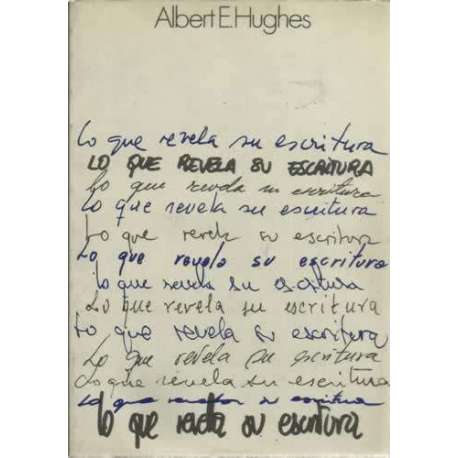 Albert E. Hughes
Lo que revela su escritura
LO QUE REVELA SU ESCRITURA
Lo que revela su escritura
lo que revela su escritura
Lo que revela su escritura
Lo que revela su escritura
lo que revela su escritura
Lo que revela su escritura
Lo que revela su escritura
Lo que revela su escritura
Lo que revela su escritura
Lo que revela su escritura
lo que revela su escritura